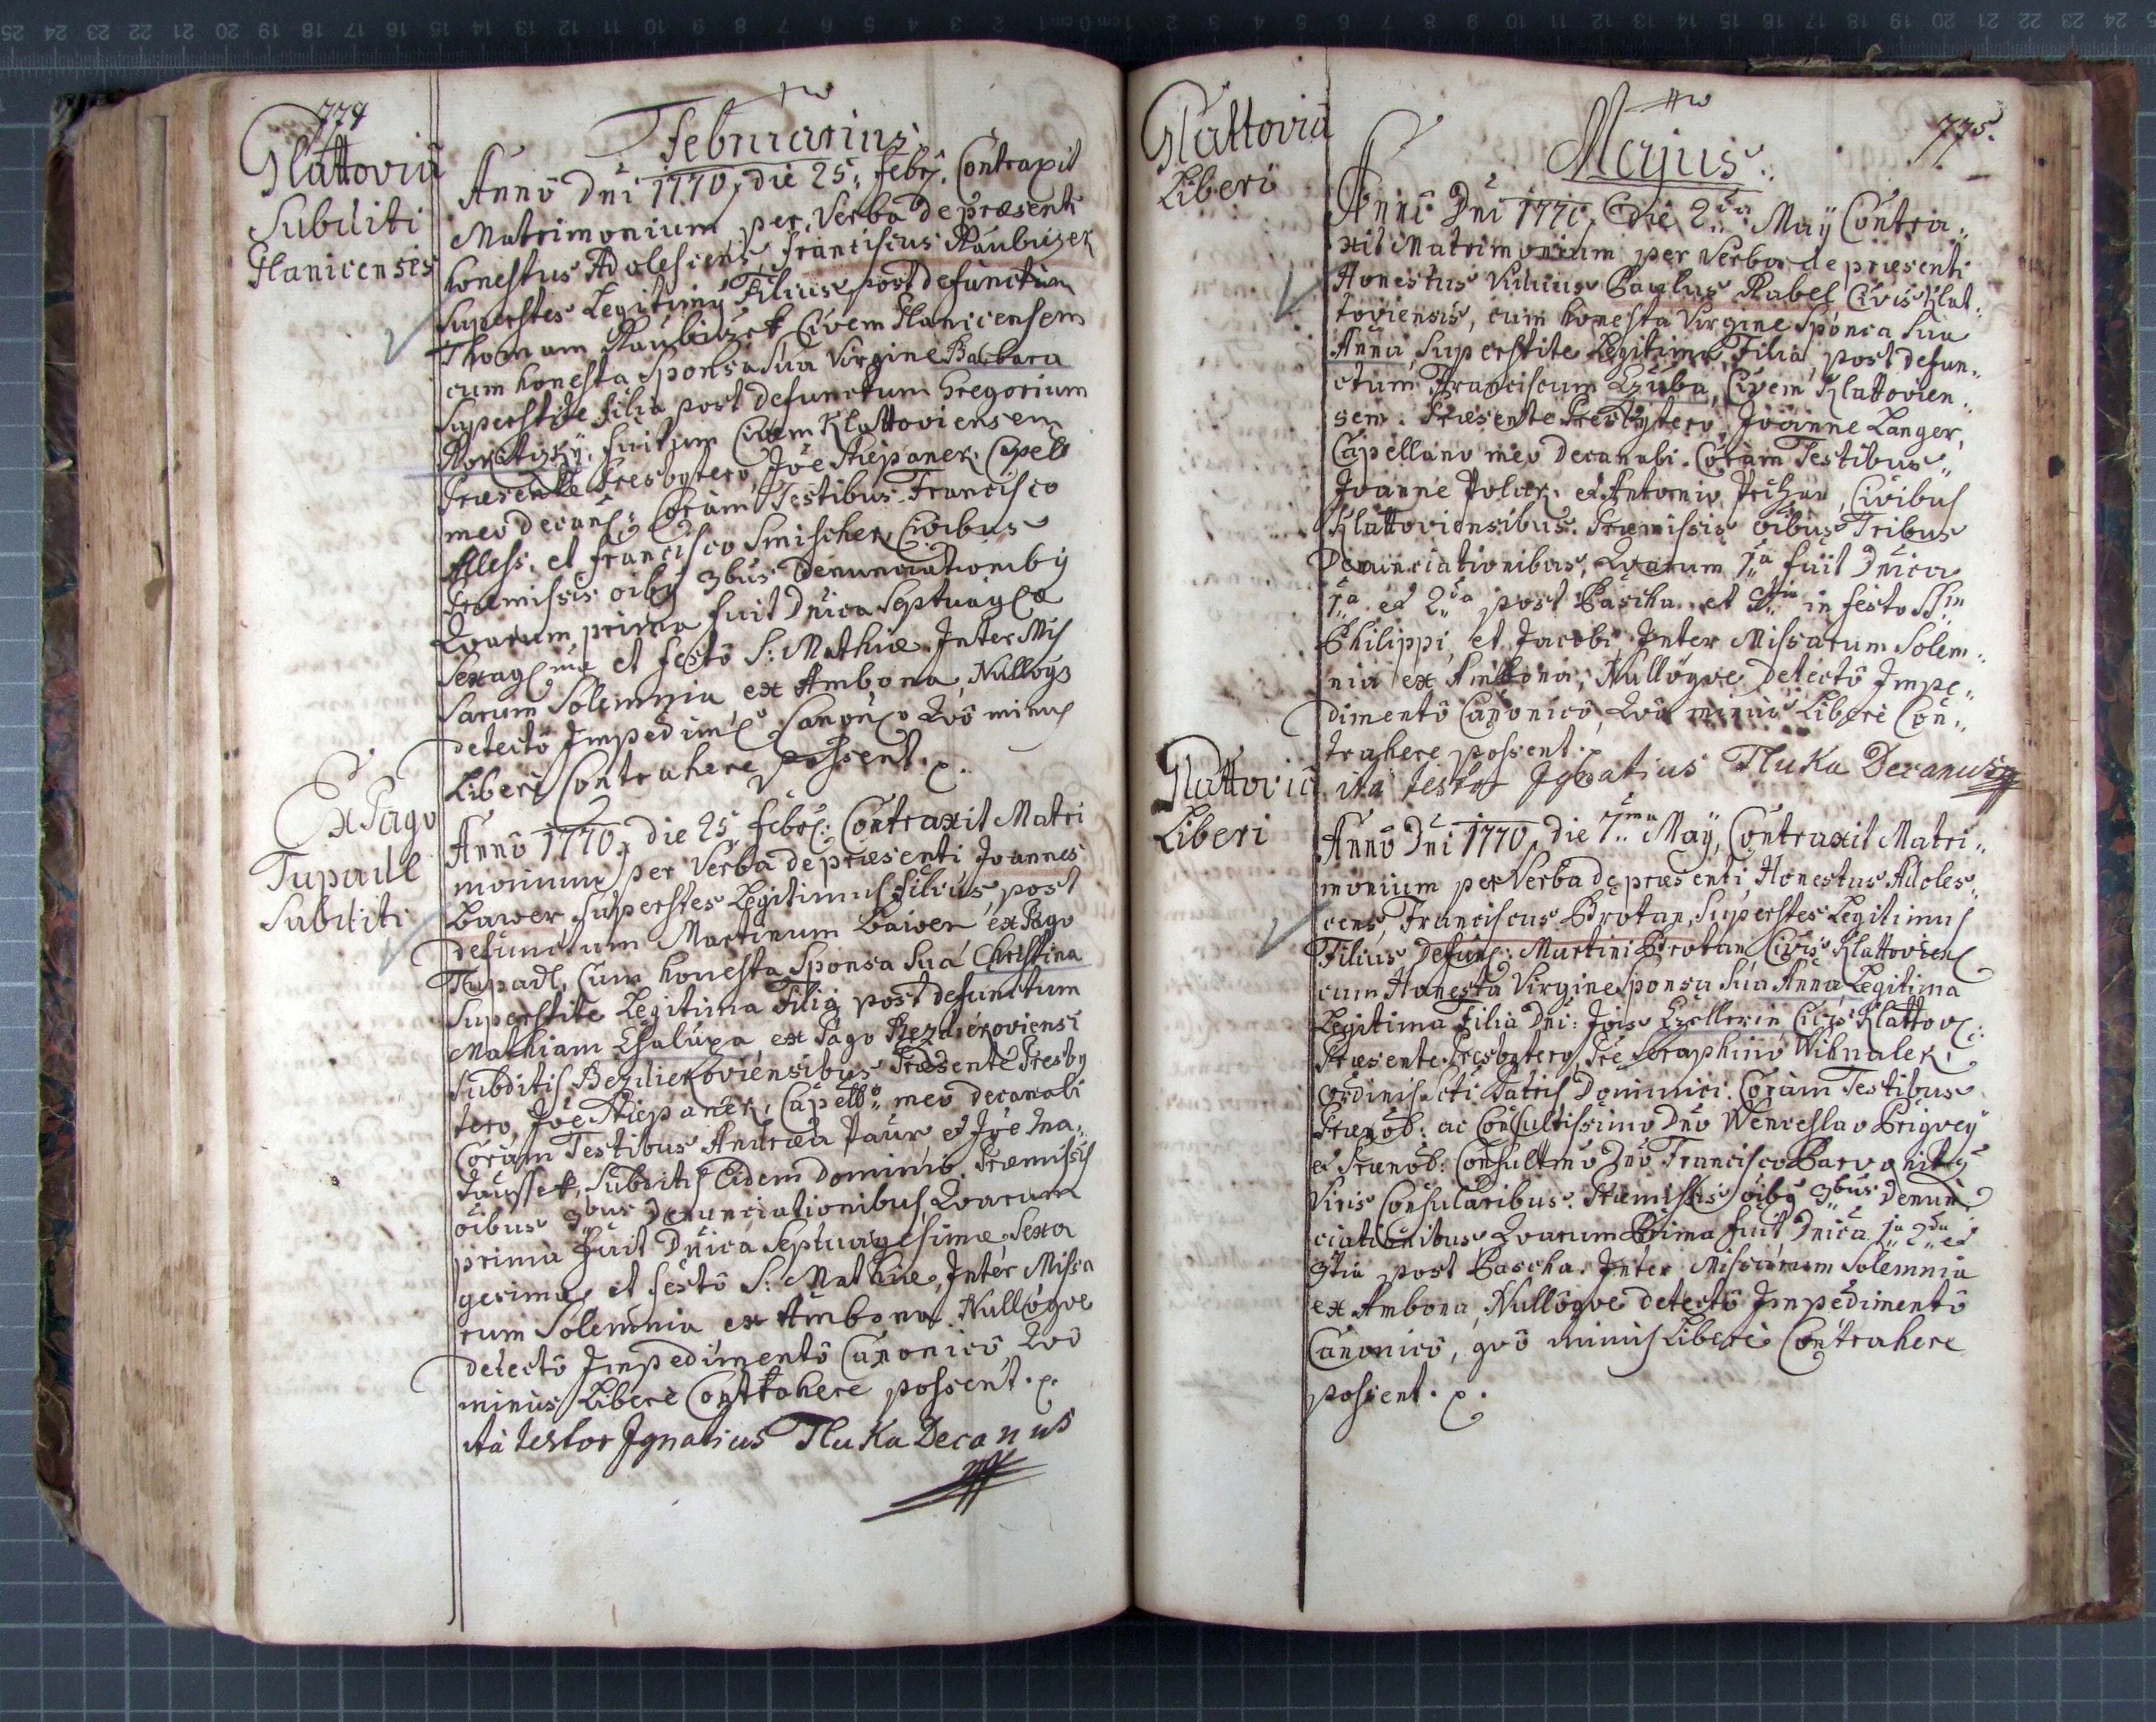 774
Februarius.
Glattoviä
Subditi
Planicenses
Annô Dni 1770, die 25, febrj. Contraxit
Matrimonium per Verba de præsenti
honestus Adolescens Franciscus Raubuzek
Superstes Legitimus Filius post defunctum
Thomam Raubuzek Civem Planicensem
cum honesta Sponsa Sua Virgine Barbara
Superstite filia post defunctum Gregorium
fuitum Civem Klattoviensem
Præsente Presbytero, Joe Stiepanek, Capell
meo decanl: Coram Testibus Francisco
et Francisco Smischek Civibus
Præmissis oibus 3bus denunciationibus
Quarum prima fuit Dnica Septuagesa
Sexagsima et festô S: Mathiæ. Inter Mis
sarum Solemnia ex Ambona, Nullôqs
detectô Impedimto Canonico Quô minus
Liberè Contrahere possent.
Ex Pago
Tupadl
Subditi
Annô 1770, die 25, febr: Contraxit Matri
monium per Verba de præsenti Joannes
Bawer, Superstes Legitimus filius, post
defunctum Martinum Bawer ex Pago
Tupadl, Cum honesta Sponsa Sua Christina
Superstite Legitima Filia post defunctum
Mathiam Chalupa, ex Pago Bezdiekoviensi
Subditis Bezdiekoviensibus Præsente Presby
tero, Joe Stiepanek, Capello meo decanali
Coram Testibus Andrea Paur et Joe Ma
tausset, Subditis Eidem Dominio, Præmissis
oibus 3bus Denunciationibus, Quarum
prima fuit Dnica Septuagesimæ, Sexa
gesimæ, et festô S: Mathiæ, Inter Missa
rum Solemnia ex Ambona, Nullôqve
detectô Impedimentô Canonicô Quô
minus Liberè Contrahere possent.
ita testor Ignatius Tluka Decanus
mp
775.
Majus.
Glattoviä
Liberi
Annô Dni 1770, die 2da Maÿ Contra
xit Matrimonium per Verba de præsenti
Honestus Viduus Paulus Rabel Civis Klat
toviensis, cum honesta Virgine Sponsa Sua
Anna Superstite Legitima Filia, post defun
ctum Franciscum Czuba, Civem Klattovien
sem. Præsente Presbytero, Joanne Langer,
Capellano meo Decanali. Coram Testibus
Joanne et Antonio Civibus
Klattoviensibus. Præmissis oibus Tribus
Denunciationibus, Quarum 1a fuit Dnica
1a et 2da post Pascha. et 3tia in festo SSm
Philippi et Jacobi, Inter Missarum Solem
nia ex Ambona, Nullôqve detectô Impe
dimentô Canonicô, Quô minus Liberè Con
trahere possent.
ita testor Ignatius Tluka Decanus mp
Glattoviä
Liberi
Annô Dni 1770, die 7ma Maÿ, Contraxit Matri
monium per Verba de præsenti, Honestus Adoles
cens, Franciscus Brotan, Superstes Legitimus
Filius Defunc: Martini Brotan Civis Klattovien
cum Honesta Virgine Sponsa Sua Anna Legitima
Legitima filia Dni: Jois Czellerin Civis Klattov:
Præsente Presbytero, Pre Seraphino Wihnalek,
Ordinis Scti Patris Dominici. Coram Testibus
Prænob: ac Consultissimo Dno Wenceslao Prigvey
et Prænob: Consultmo Dno Francisco
Viris Consularibus. Præmissis oibus 3bus Denun
ciationibus Quarum Prima fuit Dnica 1a 2da et
3tia post Pascha. Inter Missarum Solemnia
ex Ambona, Nullôqve detectô Impedimentô
Canonicô, qvô minus Liberè Contrahere
possent.